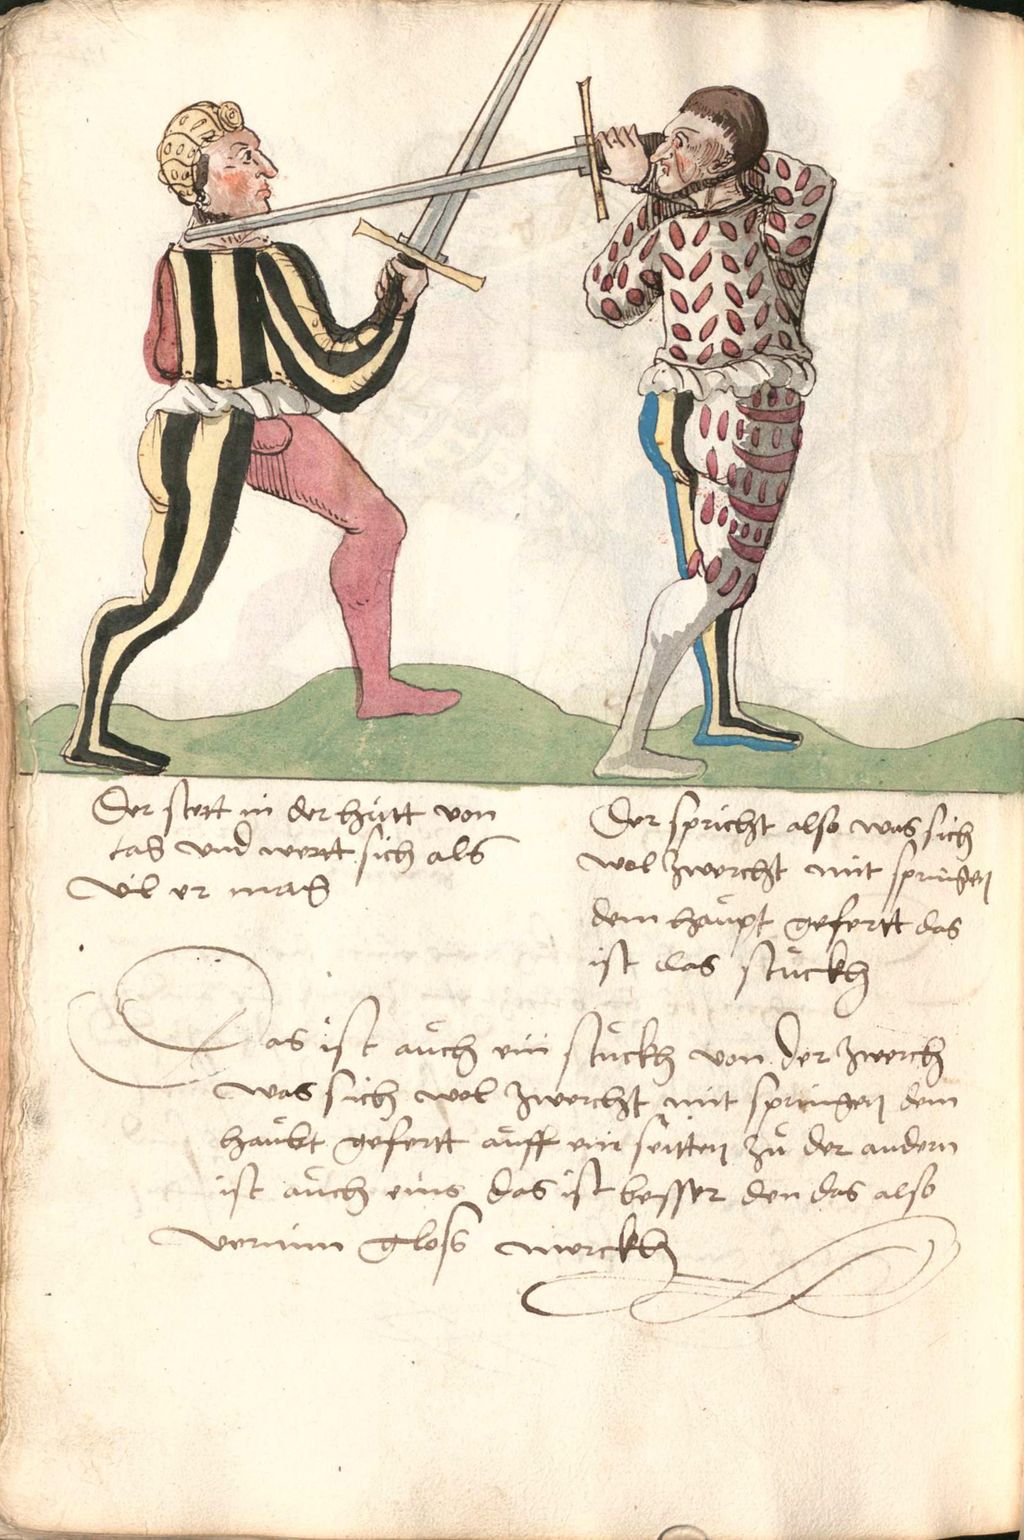 Der stett in der hůtt von
tag und wertt sich als
vil er mag
Der spricht also was sich
wol zwercht mit springen
dem haůpt gefertt das
ist das stuckh
Das ist aůch ein stuckh von der zwerch
was sich wol zwercht mit springen dem
haůbt gefertt aůff ein seitten zů der andern
ist aůch eins das ist besser den das also
vernim gloss merckh